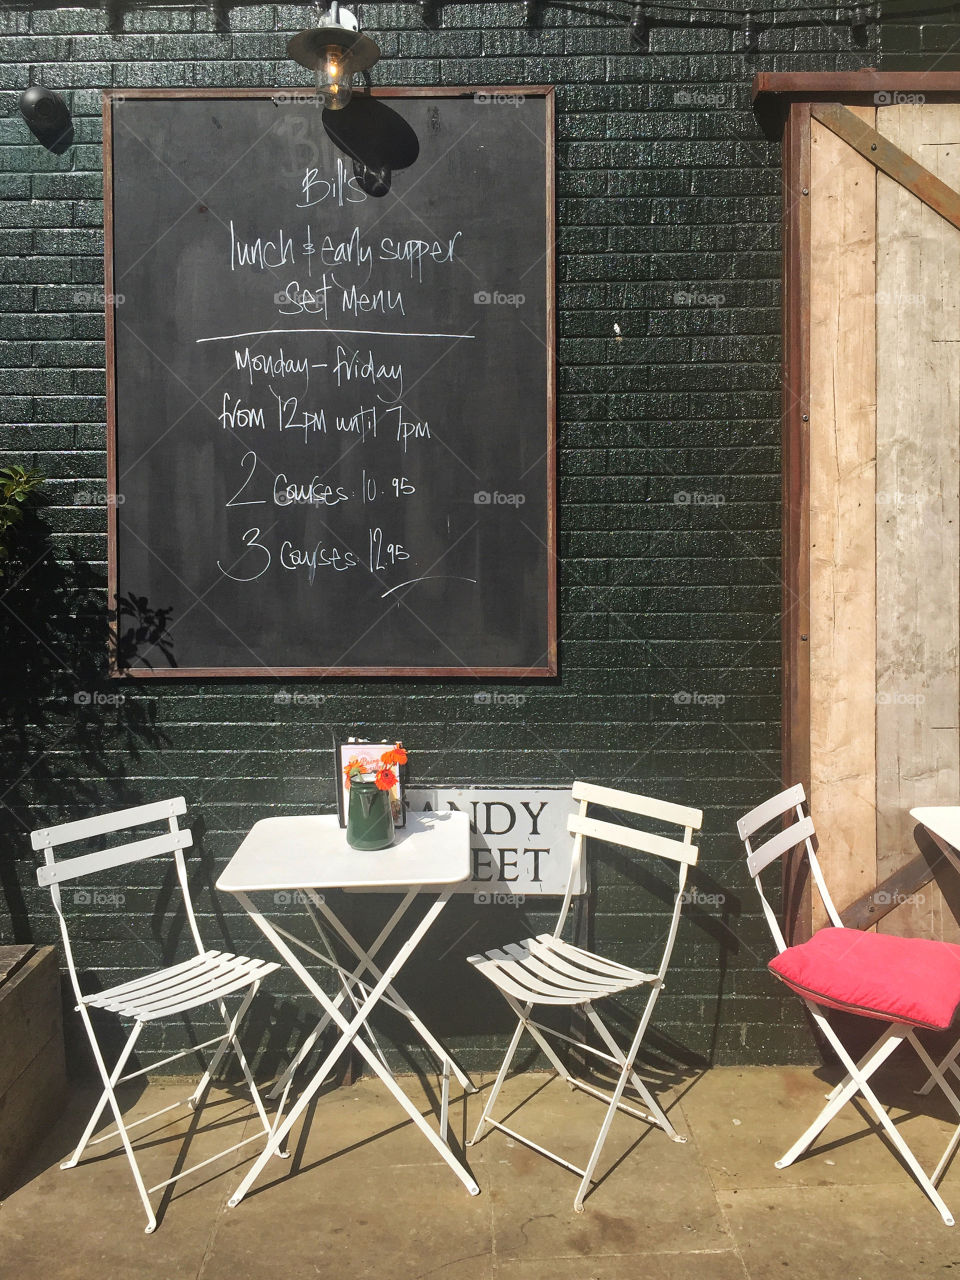 Bill's
lunch & early supper
Set Menu
Monday – friday
from 12pm until 7pm
2 Courses 10.95
3 Courses 12.95
ANDY
EET